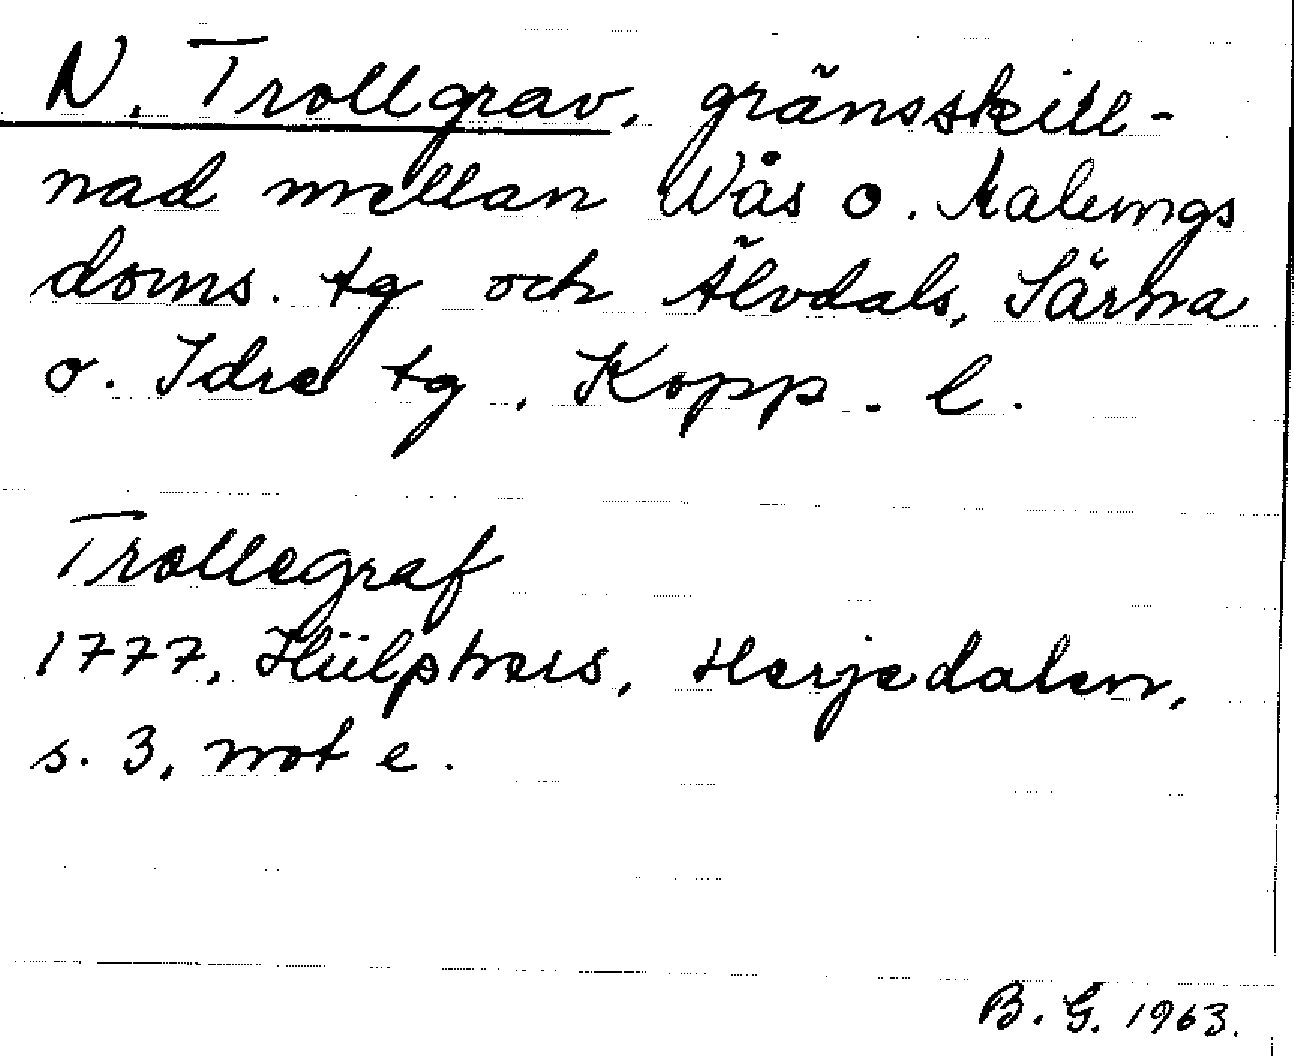 N. Trollgrav, gränsskill-
nad mellan Nås o. Malungs
doms. tg och Älvdals, Särna
o. Idre tg, Kopp. l.
Trollegraf
1777, Hülphers, Herjedalen,
s. 3, not e.
B. G. 1963.